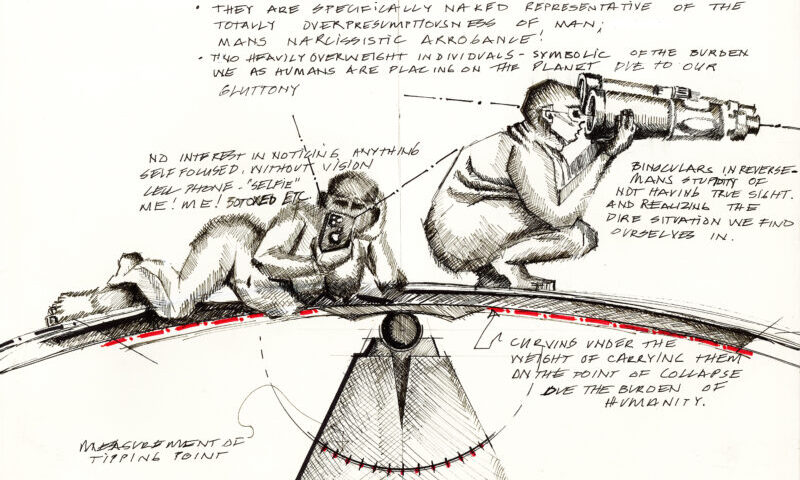 • THEY ARE SPECIFICALLY NAKED REPRESENTATIVE OF THE
TOTALLY OVERPRESUMPTIOUSNESS OF MAN;
MANS NARCISSISTIC ARROGANCE!
• TWO HEAVILY OVERWEIGHT INDIVIDUALS - SYMBOLIC OF THE BURDEN
WE AS HUMANS ARE PLACING ON THE PLANET DUE TO OUR
GLUTTONY
NO INTEREST IN NOTICING ANYTHING
SELF FOCUSED, WITHOUT VISION
CELL PHONE - "SELFIE"
ME! ME! BOTOXED ETC
BINOCULARS IN REVERSE-
MANS STUPIDITY OF
NOT HAVING TRUE SIGHT.
AND REALIZING THE
DIRE SITUATION WE FIND
OURSELVES IN.
CURVING UNDER THE
WEIGHT OF CARRYING THEM
ON THE POINT OF COLLAPSE
DUE THE BURDEN OF
HUMANITY.
MEASUREMENT OF
TIPPING POINT